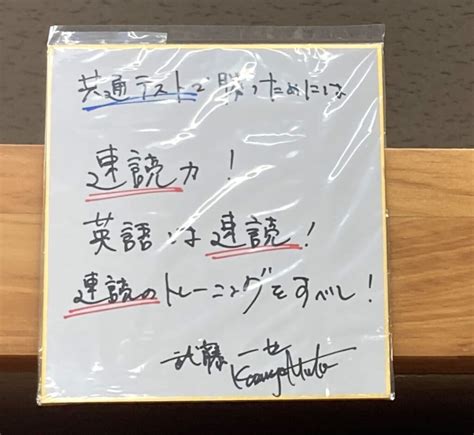 共通テストで勝つためには
速読力！
英語は速読！
速読のトレーニングをすべし！
武藤一也
Kazuya Muto